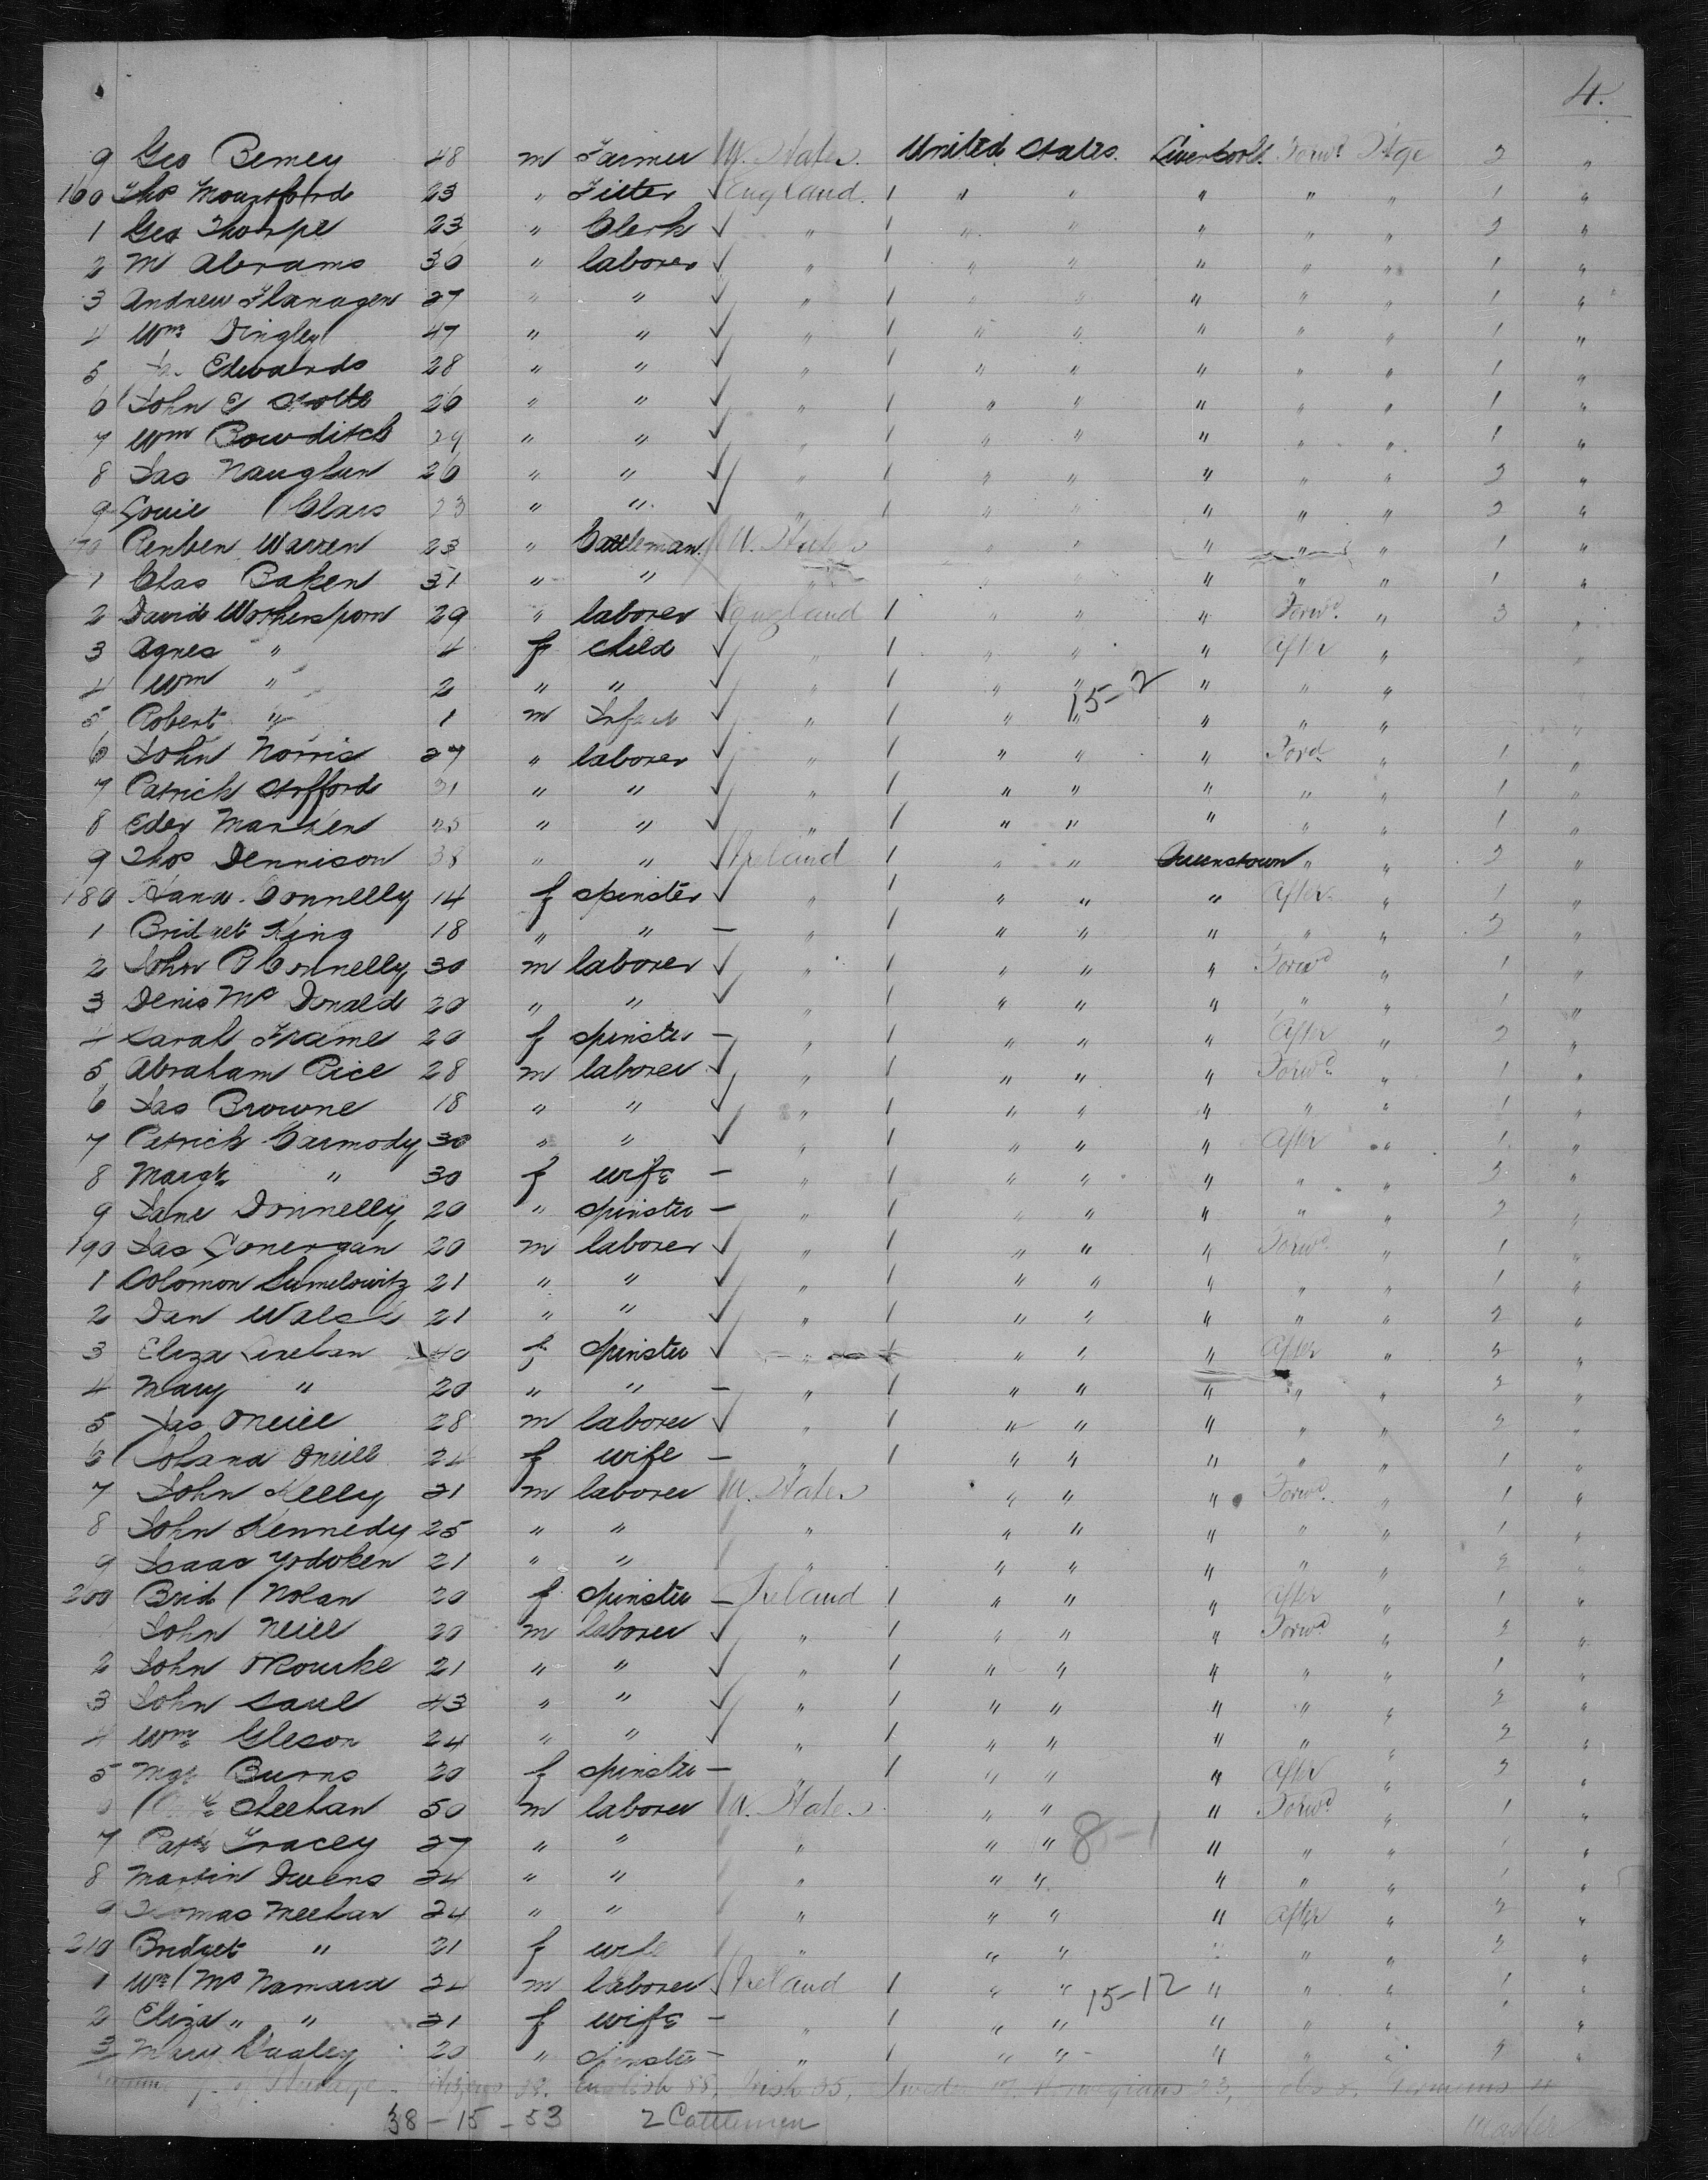 4.
9 Geo Berney 48 m Farmer U. States. United States. Liverpool. Forwd Stge 2 "
160 Thos Mountford 23 " Fitter ✓ England. 1 " " " " " 1 "
1 Geo Thorpe 23 " Clerk ✓ " 1 " " " " " 2 "
2 M Abrams 30 " laborer ✓ " 1 " " " " " 1 "
3 Andrew Flanagen 27 " " ✓ " 1 " " " " " 1 "
4 Wm Dingley 47 " " ✓ " 1 " " " " " 1 "
5 Edwards 28 " " ✓ " 1 " " " " " 1 "
6 John E 26 " " ✓ " 1 " " " " " 1 "
7 Wm Bowditch 29 " " ✓ " 1 " " " " " 1 "
8 Jas Naughlin 26 " " ✓ " 1 " " " " " 2 "
9 Louie Clars 23 " " ✓ " 1 " " " " " 2 "
170 Reuben Warren 23 " Cattleman. U. States " " " " " 1 "
1 Chas Baken 31 " " " " " " " " 1 "
2 David Wotherspoon 29 " laborer ✓ England 1 " " " Forwd. " 3 "
3 Agnes " 4 f child ✓ " 1 " " " After " "
4 Wm " 2 " " ✓ " 1 " " 15-2 " " "
5 Robert " 1 m Infant ✓ " 1 " " " " " "
6 John Norris 27 " laborer ✓ " 1 " " " Ford " 1 "
7 Patrick Stafford 31 " " ✓ " 1 " " " " " 1 "
8 Eder Marsken 23 " " ✓ " 1 " " " " " 1 "
9 Thos Dennison 38 " " ✓ Ireland 1 " " Queenstown " " 2 "
180 Hana Connelly 14 f spinster ✓ " 1 " " " After " 1 "
1 Bridget King 18 " " — " 1 " " " " " 3 "
2 John P Connelly 30 m laborer ✓ " 1 " " " Forwd " 1 "
3 Denis Mc Donald 20 " " ✓ " 1 " " " " " 1 "
4 Sarah Frame 20 f spinster — " 1 " " " After " 2 "
5 Abraham Rice 28 m laborer ✓ " 1 " " " Forwd " 1 "
6 Jas Browne 18 " " ✓ " 1 " " " " " 1 "
7 Patrick Carmody 30 " " ✓ " 1 " " " After " 1 "
8 Margt " 30 f wife — " 1 " " " " " 3 "
9 Jane Donnelly 20 " spinster — " 1 " " " " " 2 "
190 Jas Lonergan 20 m laborer ✓ " 1 " " " Forwd " 1 "
1 Solomon Sumelowitz 21 " " ✓ " 1 " " " " " 1 "
2 Dan Walsh 21 " " ✓ " 1 " " " " " 2 "
3 Eliza 40 f spinster ✓ " " " " After " 3 "
4 Mary " 20 " " — " 1 " " " " " 3 "
5 Jas ONeill 28 m laborer ✓ " 1 " " " " " 3 "
6 Johana ONeill 24 f wife — " 1 " " " " " 1 "
7 John Kelly 31 m laborer U. States " " " Forwd " 1 "
8 John Kennedy 25 " " " " " " " " 1 "
9 Isaac Yodoken 21 " " " " " " " " 2 "
200 Brid Nolan 20 f spinster — Ireland 1 " " " After " 1 "
John Neill 20 m laborer ✓ " 1 " " " Forwd " 3 "
2 John ORourke 21 " " ✓ " 1 " " " " " 1 "
3 John Saul 43 " " ✓ " 1 " " " " " 3 "
4 Wm Gleson 24 " " ✓ " 1 " " " " " 2 "
5 Mgt Burns 20 f spinster — " 1 " " " After " 3 "
6 Sheehan 50 m laborer U. States " " " Forwd " 1 "
7 Patk Tracey 27 " " " " " 8-1 " " " 1 "
8 Martin Owens 24 " " " " " " " " 1 "
9 Thomas Meehan 24 " " " " " " After " 3 "
210 Bridget " 21 f wife " " " " " " 3 "
1 Wm Mc Namara 24 m laborer ✓ Ireland 1 " " 15-12 " " " 1 "
2 Eliza " " 21 f wife — " 1 " " " " " 1 "
3 Mary Dagley 20 " spinster — " " " " " " 3 "
Steerage. Citizens 38. English 88. Irish 35. Swedes Norwegians 23, Germans
38 - 15 - 53 2 Cattlemen
Master